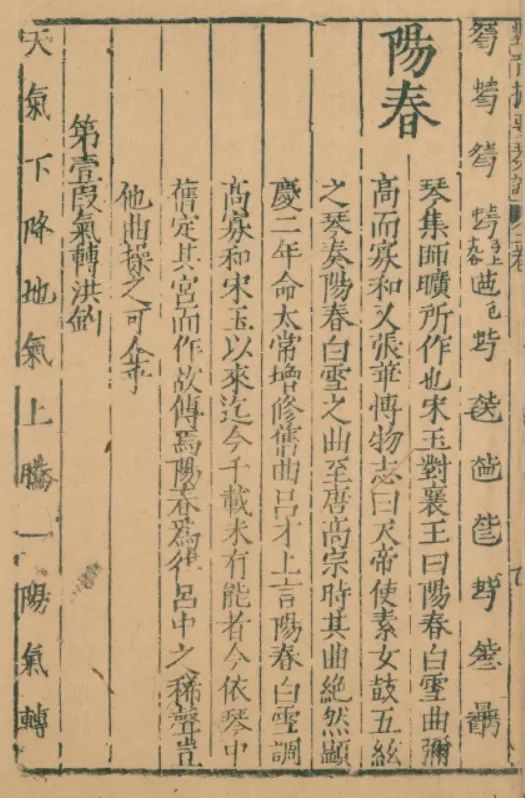 陽春
琴集師曠所作也宋玉對襄王曰陽春白雪曲彌
高而寡和又張華博物志曰天帝使素女鼓五絃
之琴奏陽春白雪之曲至唐高宗時其曲絶然顯
慶二年命太常增修舊曲呂才上言陽春白雪調
高寡和宋玉以來迄今千載未有能者今依琴中
舊定其宮而作故傳焉陽春爲律呂中之稀聲豈
他曲操之可仝乎
第壹段氣轉洪鈞
天氣下降地氣上騰一陽氣轉